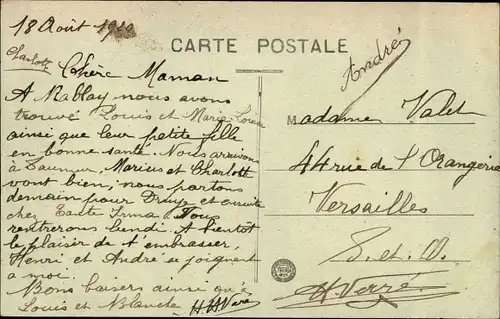 18 Août
CARTE POSTALE
Charlotte
André
Chère Maman
A Nablay nous avons
trouvé Louis et Marie-Louise
ainsi que leur petite fille
en bonne santé. Nous arrivons
à Saumur, Marius et Charlotte
vont bien, nous partons
demain pour et ensuite
chez Tante Irma. Nous
rentrerons lundi. A bientôt
le plaisir de t'embrasser,
Henri et André se joignent
à moi.
Bons baisers ainsi qu'à
Louis et Blanche
Madame Valet
44 rue de l'Orangerie
Versailles
S. et O.